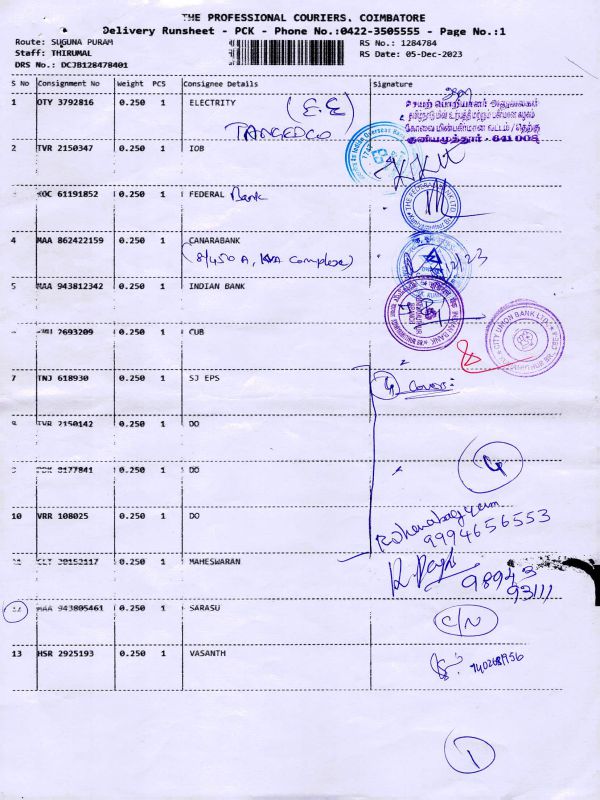 THE PROFESSIONAL COURIERS. COIMBATORE
Delivery Runsheet - PCK - Phone No.:0422-3505555 - Page No.:1
Route: SUGUNA PURAM RS No.: 1284784
Staff: THIRUMAL RS Date: 05-Dec-2023
DRS No.: DCJB128478401
S No Consignment No Weight PCS Consignee Details Signature
1 OTY 3792816 0.250 1 ELECTRITY (E.E)
TANGEDCO
செயற் பொறியாளர் அலுவலகம்
குனியமுத்தூர் - 641 008
2 TVR 2150347 0.250 1 IOB
Indian Overseas Bank
KOC 61191852 0.250 1 FEDERAL Bank
THE FEDERAL BANK LTD
4 MAA 862422159 0.250 1 CANARABANK
(8/450 A, KVA Complex)
12/23
5 MAA 943812342 0.250 1 INDIAN BANK
INDIAN BANK
2693209 0.250 1 CUB
CITY UNION BANK LTD.
7 TNJ 618930 0.250 1 SJ EPS
4 Covers:
TVR 2150142 0.250 1 DO
4
9177841 0.250 1 DO
10 VRR 108025 0.250 1 DO
9994656553
0.250 1 MAHESWARAN
98943
93111
12 MAA 943805461 0.250 1 SARASU C/N
13 HSR 2925193 0.250 1 VASANTH
1